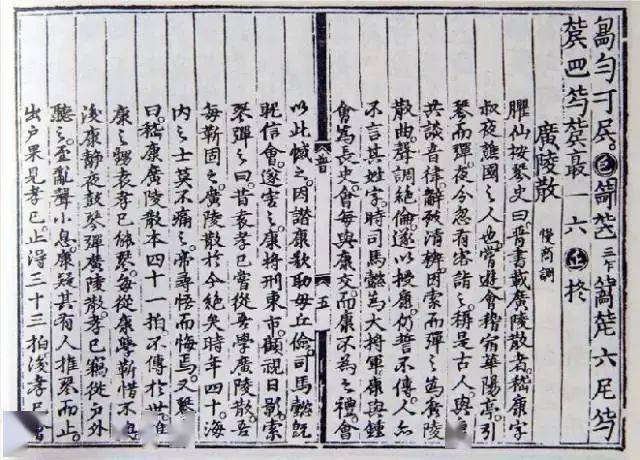 廣陵散 慢商調
臞仙按琴史曰晋書載廣陵散者嵇康字
叔夜譙國之人也嘗遊會稽宿華陽亭引
琴而彈夜今忽有客詣之稱是古人與
共談音律辭致清辨因索而彈之為廣陵
散曲聲調絕倫遂以授康仍誓不傳人亦
不言其姓字時司馬懿為大將軍康與鍾
會為長史會每與康交而康不為之禮會
五
以此憾之因譖康欲助毋丘儉司馬懿旣
昵信會遂害之康將刑東市顧視日影索
琴彈之曰昔袁孝已嘗從吾學廣陵散吾
每靳固之廣陵散於今絕矣時年四十海
內之士莫不痛之帝尋悟而悔焉又琴
曰嵇康廣陵散本四十一拍不傳於世惟
康之甥袁孝已能琴每從康學靳惜不
後康靜夜鼓琴彈廣陵散孝已竊從戶外
聽之至亂聲小息康疑其有人推琴而止
出戶果見孝已止得三十三拍後孝已